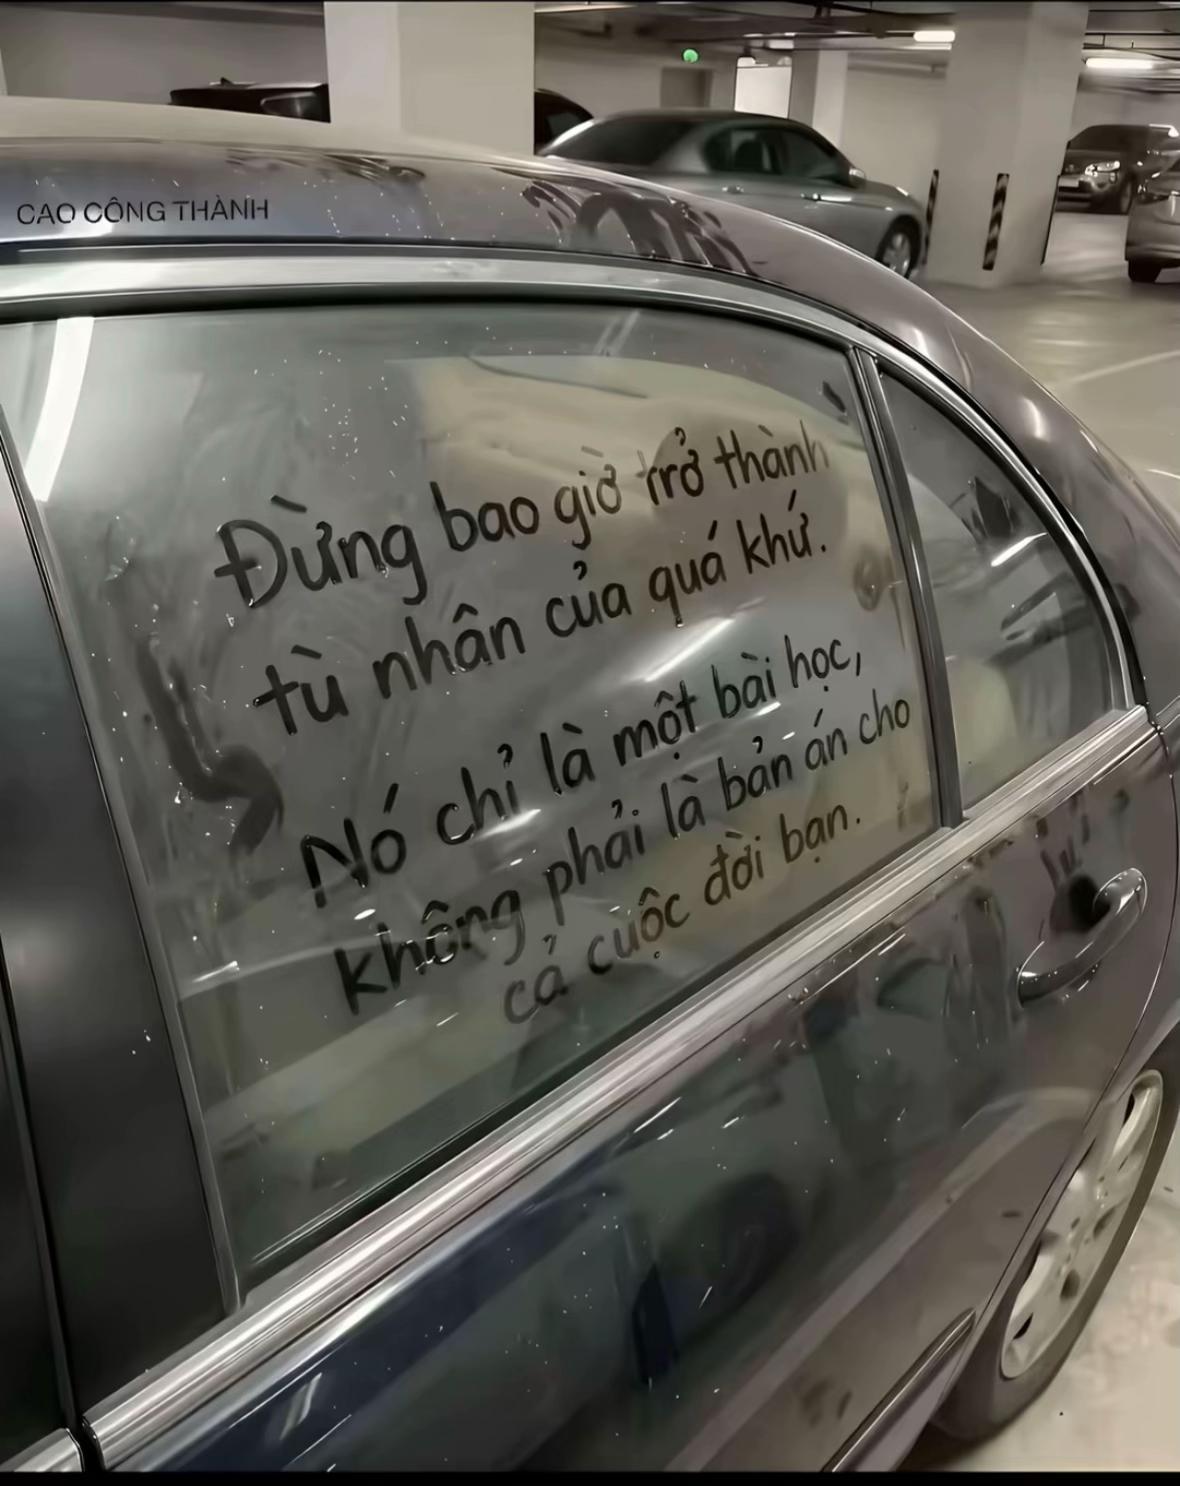 CAO CÔNG THÀNH
Đừng bao giờ trở thành
tù nhân của quá khứ.
Nó chỉ là một bài học,
không phải là bản án cho
cả cuộc đời bạn.